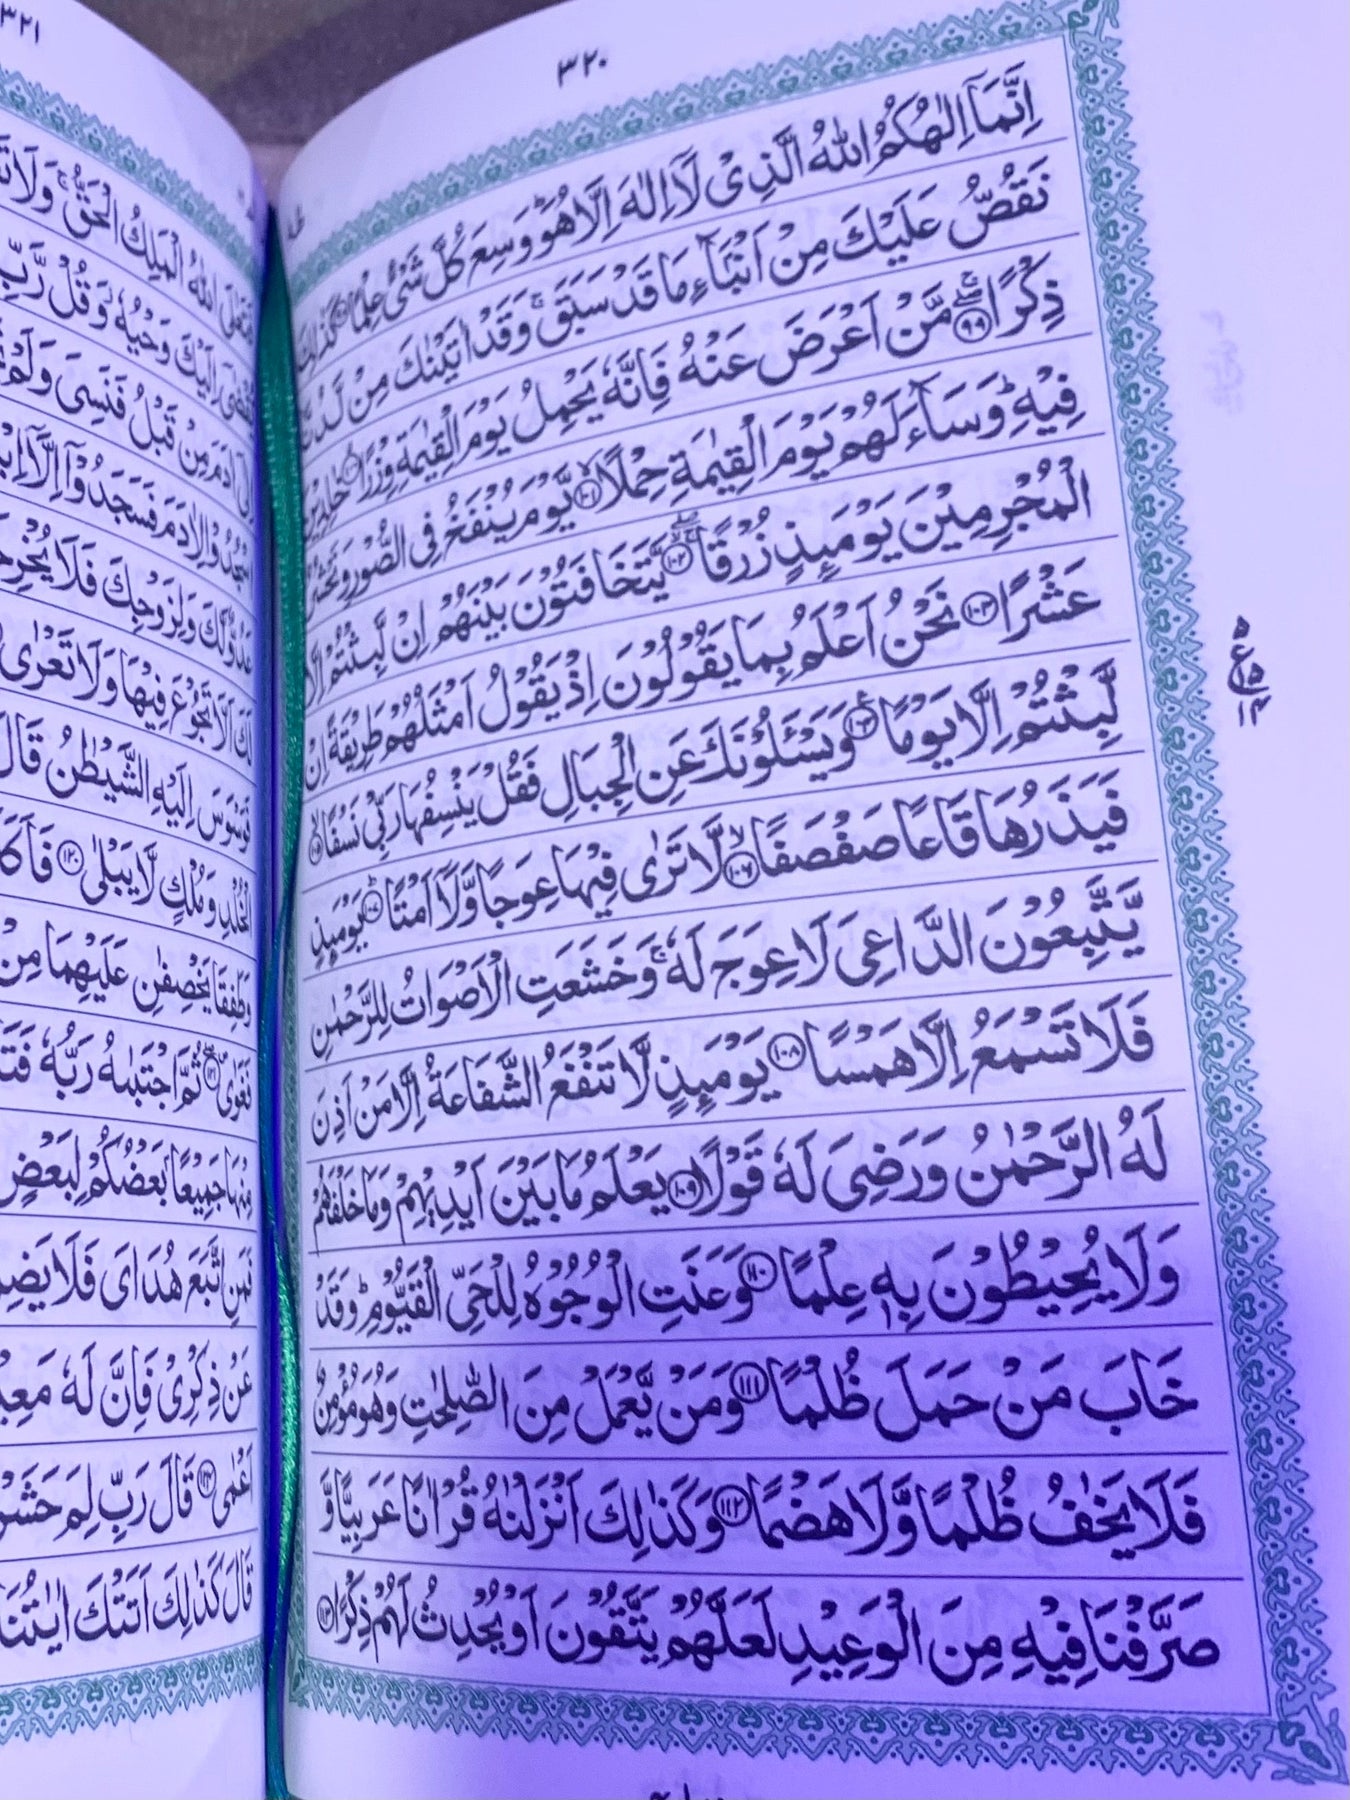 ٣٢٠
اِنَّمَاۤ اِلٰهُكُمُ اللّٰهُ الَّذِىْ لَاۤ اِلٰهَ اِلَّا هُوَؕ وَسِعَ كُلَّ شَىْءٍ عِلْمًا ۹۸ كَذٰلِكَ
نَقُصُّ عَلَيْكَ مِنْ اَنْۢبَآءِ مَا قَدْ سَبَقَۚ وَقَدْ اٰتَيْنٰكَ مِنْ لَّدُنَّا
ذِكْرًا ۹۹ مَّنْ اَعْرَضَ عَنْهُ فَاِنَّهٗ يَحْمِلُ يَوْمَ الْقِيٰمَةِ وِزْرًا ۱۰۰ خٰلِدِيْنَ
فِيْهِؕ وَسَآءَ لَهُمْ يَوْمَ الْقِيٰمَةِ حِمْلًا ۱۰۱ يَّوْمَ يُنْفَخُ فِى الصُّوْرِ وَنَحْشُرُ
الْمُجْرِمِيْنَ يَوْمَئِذٍ زُرْقًا ۱۰۲ يَّتَخَافَتُوْنَ بَيْنَهُمْ اِنْ لَّبِثْتُمْ اِلَّا
عَشْرًا ۱۰۳ نَحْنُ اَعْلَمُ بِمَا يَقُوْلُوْنَ اِذْ يَقُوْلُ اَمْثَلُهُمْ طَرِيْقَةً اِنْ
لَّبِثْتُمْ اِلَّا يَوْمًا ۱۰۴ وَيَسْئَلُوْنَكَ عَنِ الْجِبَالِ فَقُلْ يَنْسِفُهَا رَبِّىْ نَسْفًا ۱۰۵
فَيَذَرُهَا قَاعًا صَفْصَفًا ۱۰۶ لَّا تَرٰى فِيْهَا عِوَجًا وَّلَاۤ اَمْتًا ۱۰۷ يَوْمَئِذٍ
يَّتَّبِعُوْنَ الدَّاعِىَ لَا عِوَجَ لَهٗۚ وَخَشَعَتِ الْاَصْوَاتُ لِلرَّحْمٰنِ
فَلَا تَسْمَعُ اِلَّا هَمْسًا ۱۰۸ يَوْمَئِذٍ لَّا تَنْفَعُ الشَّفَاعَةُ اِلَّا مَنْ اَذِنَ
لَهُ الرَّحْمٰنُ وَرَضِىَ لَهٗ قَوْلًا ۱۰۹ يَعْلَمُ مَا بَيْنَ اَيْدِيْهِمْ وَمَا خَلْفَهُمْ
وَلَا يُحِيْطُوْنَ بِهٖ عِلْمًا ۱۱۰ وَعَنَتِ الْوُجُوْهُ لِلْحَىِّ الْقَيُّوْمِؕ وَقَدْ
خَابَ مَنْ حَمَلَ ظُلْمًا ۱۱۱ وَمَنْ يَّعْمَلْ مِنَ الصّٰلِحٰتِ وَهُوَ مُؤْمِنٌ
فَلَا يَخٰفُ ظُلْمًا وَّلَا هَضْمًا ۱۱۲ وَكَذٰلِكَ اَنْزَلْنٰهُ قُرْاٰنًا عَرَبِيًّا وَّ
صَرَّفْنَا فِيْهِ مِنَ الْوَعِيْدِ لَعَلَّهُمْ يَتَّقُوْنَ اَوْ يُحْدِثُ لَهُمْ ذِكْرًا ۱۱۳
٣٢١
فَتَعٰلَى اللّٰهُ الْمَلِكُ الْحَقُّۚ وَلَا
يُّقْضٰٓى اِلَيْكَ وَحْيُهٗ وَقُلْ رَّبِّ
اِلٰٓى اٰدَمَ مِنْ قَبْلُ فَنَسِىَ وَلَمْ
اسْجُدُوْا لِاٰدَمَ فَسَجَدُوْۤا اِلَّاۤ
عَدُوٌّ لَّكَ وَلِزَوْجِكَ فَلَا
لَكَ اَلَّا تَجُوْعَ فِيْهَا وَلَا تَعْرٰى
فَوَسْوَسَ اِلَيْهِ الشَّيْطٰنُ قَالَ
الْخُلْدِ وَمُلْكٍ لَّا يَبْلٰى ۱۲۰
وَطَفِقَا يَخْصِفٰنِ عَلَيْهِمَا مِنْ
فَغَوٰى ۱۲۱ ثُمَّ اجْتَبٰهُ رَبُّهٗ
مِنْهَا جَمِيْعًاۢ بَعْضُكُمْ لِبَعْضٍ
فَمَنِ اتَّبَعَ هُدَاىَ فَلَا
عَنْ ذِكْرِىْ فَاِنَّ لَهٗ
اَعْمٰى ۱۲۴ قَالَ رَبِّ لِمَ
قَالَ كَذٰلِكَ اَتَتْكَ